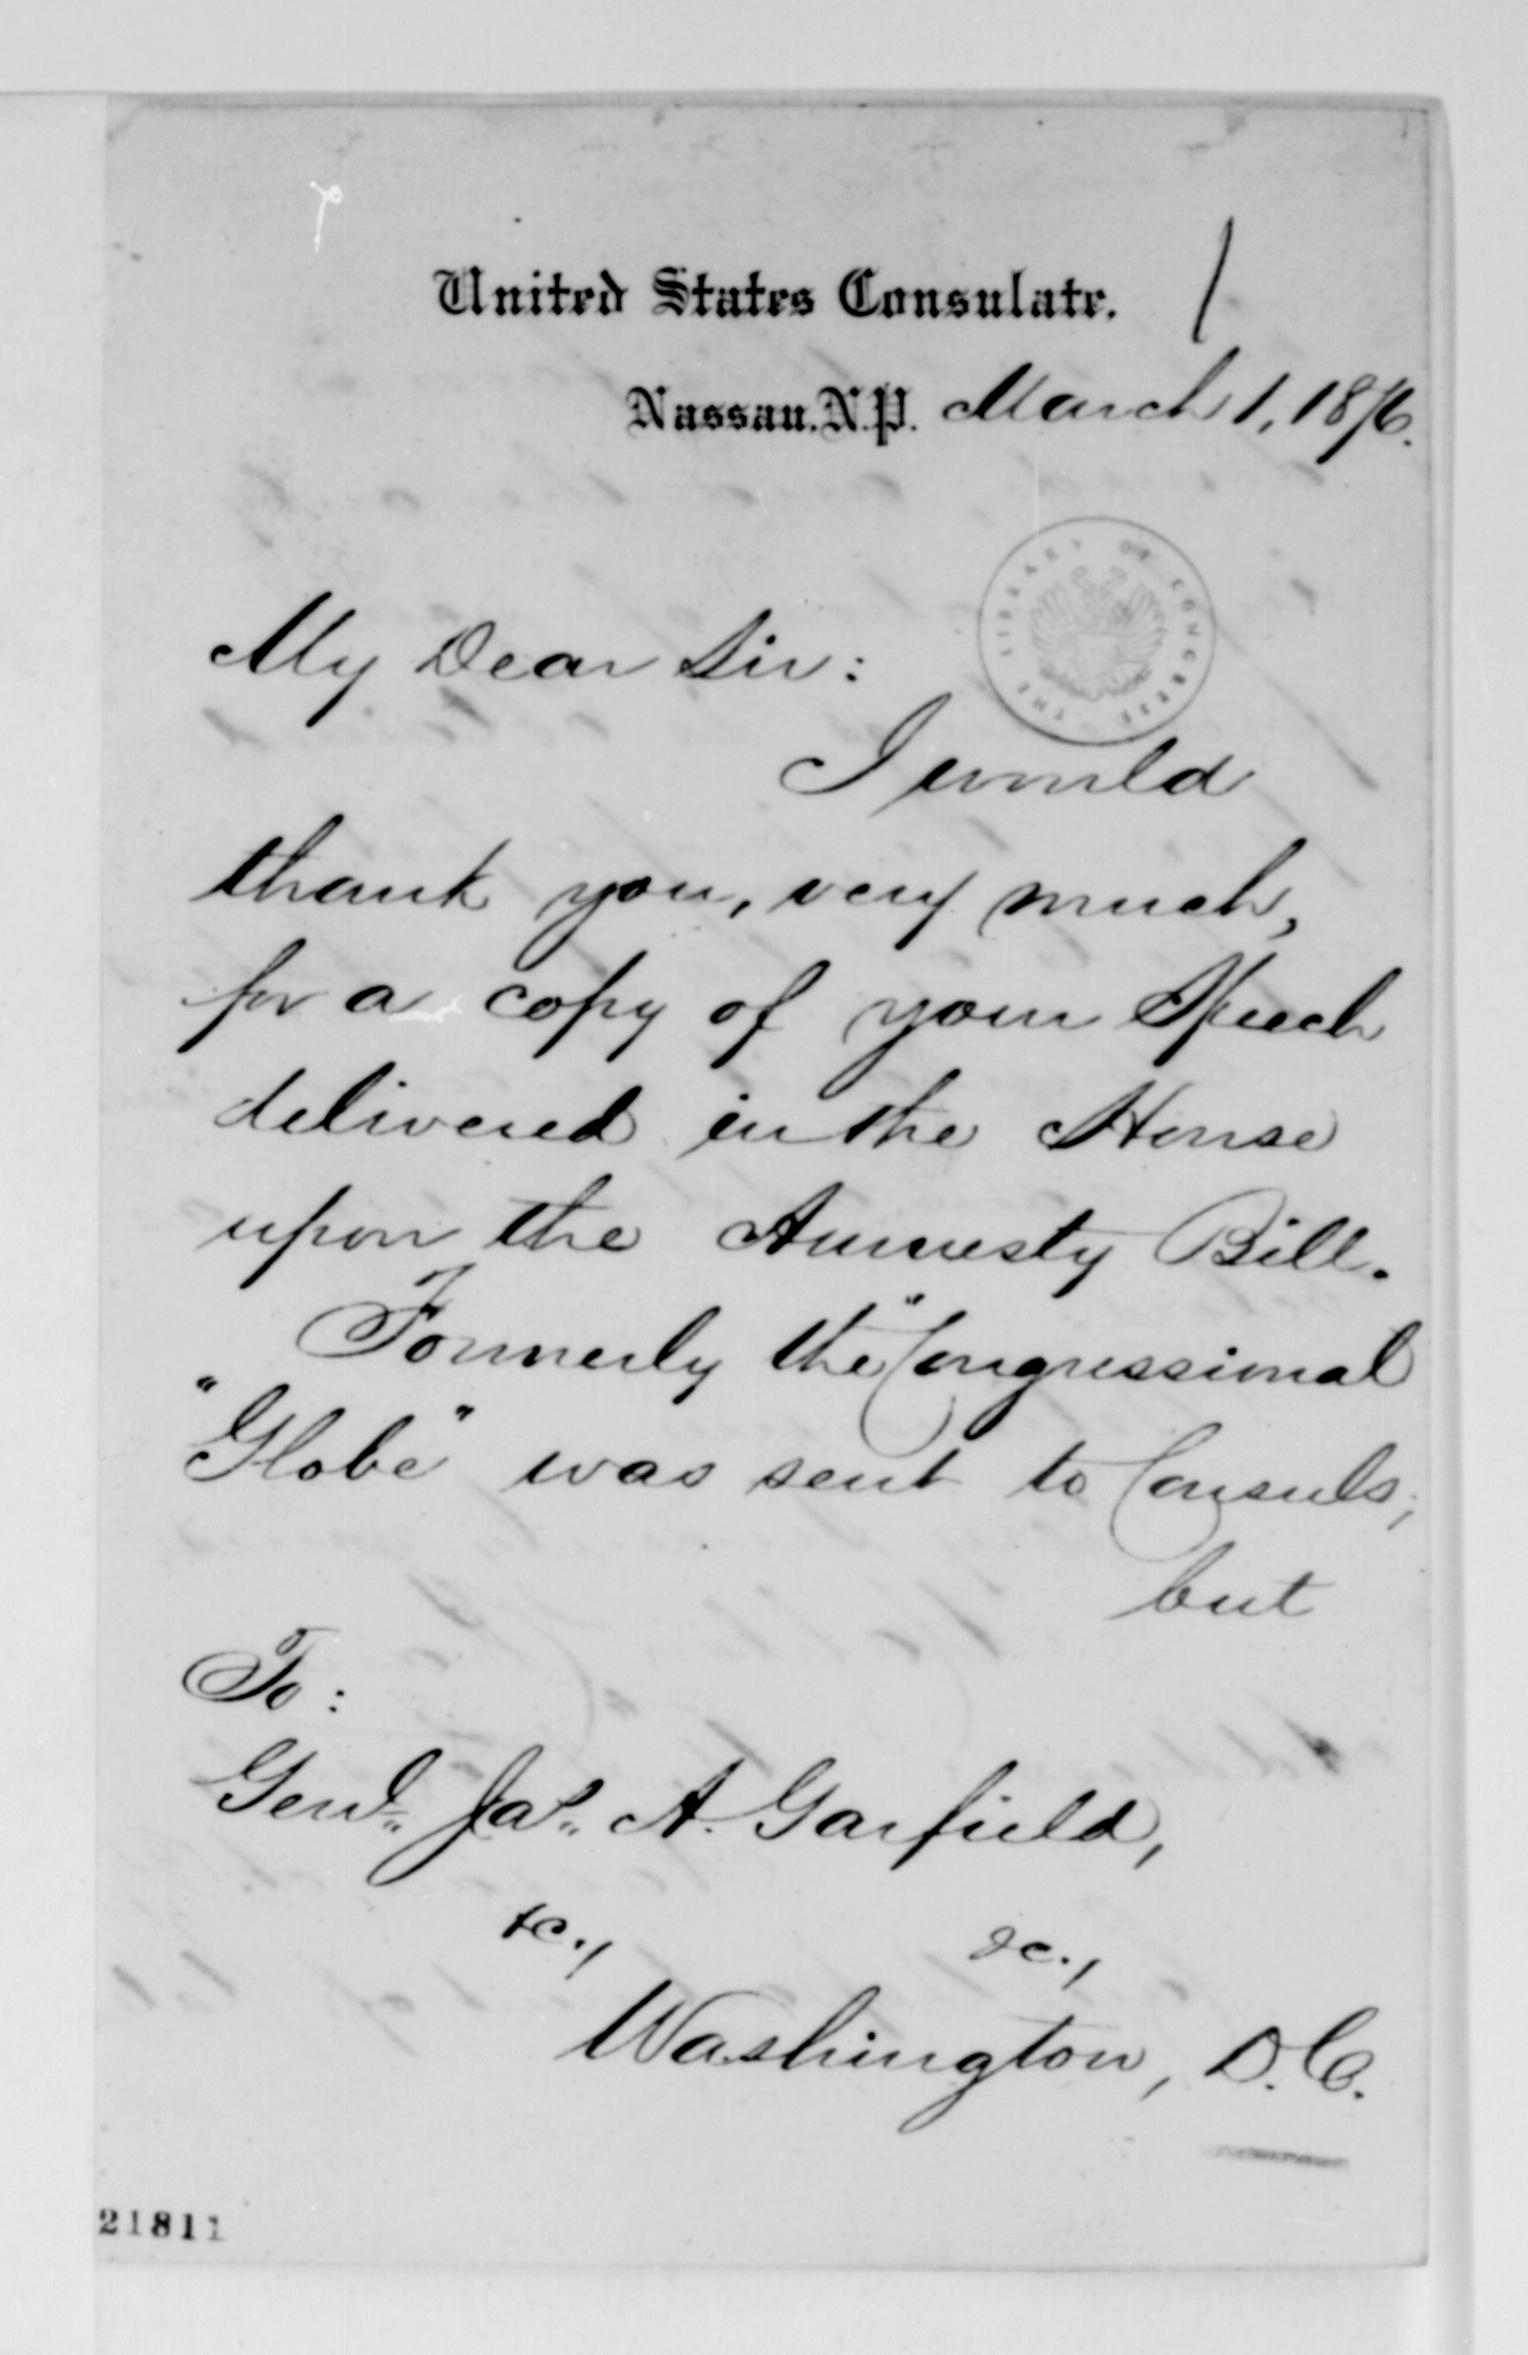 United States Consulate.
Nassau. N.P. March 1, 1876.
THE LIBRARY OF CONGRESS
My Dear Sir:
I would
thank you, very much,
for a copy of your Speech
delivered in the House
upon the Amnesty Bill.
Formerly the "Congressional
"Globe" was sent to Consuls;
but
To:
Genl. Jas. A. Garfield,
&c., &c.,
Washington, D.C.
21811